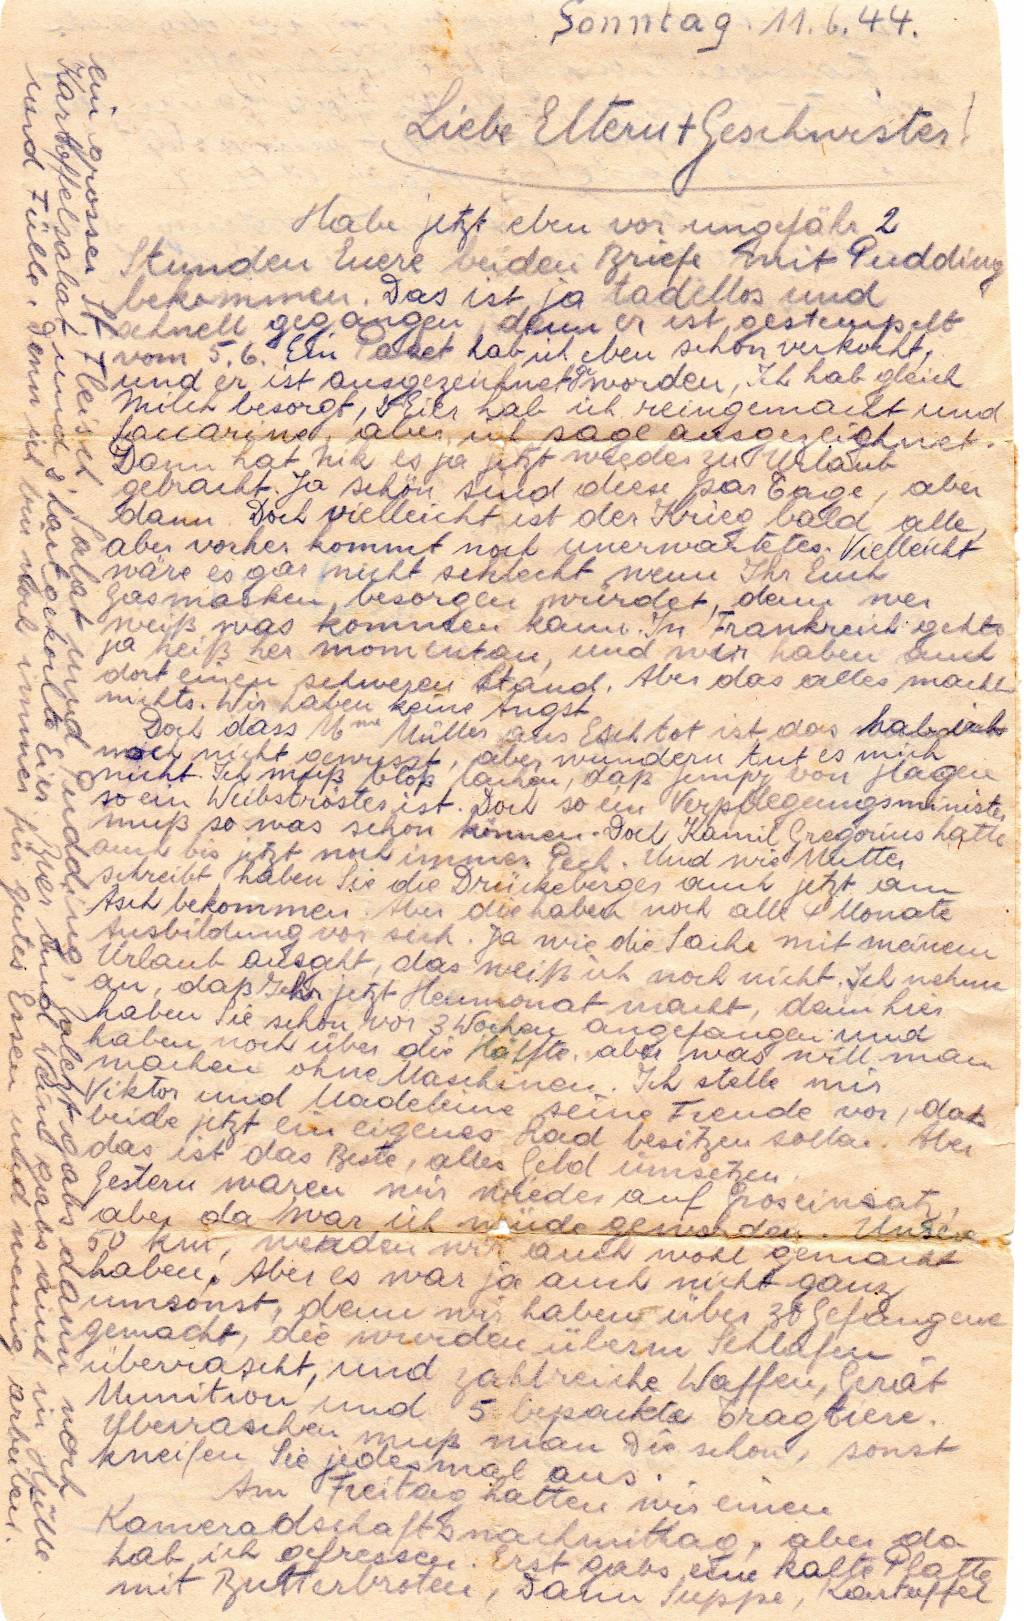 Sonntag 11.6.44.
Liebe Eltern + Geschwister!
Habe jetzt eben vor ungefähr 2
Stunden Euere beiden Briefe mit Pudding
bekommen. Das ist ja tadellos und
schnell gegangen, denn er ist gestempelt
vom 5.6. Ein Paket hab ich eben schon verkocht,
und er ist ausgezeichnet geworden, Ich hab gleich
Milch besorgt, Eier hab ich reingemacht und
Saccarine, aber ich sage ausgezeichnet.
Dann hat Nik es ja jetzt wieder zu Urlaub
gebracht. Ja schön sind diese par Tage, aber
dann. Doch vielleicht ist der Krieg bald alle,
aber vorher kommt noch unerwartetes. Vielleicht
wäre es gar nicht schlecht wenn Ihr Euch
Gasmasken besorgen würdet, denn wer
weiß was kommen kann. In Frankreich gehts
ja heiß her momentan, und wir haben auch
dort einen schweren Stand. Aber das alles macht
nichts. Wir haben keine Angst
Doch dass Mme Müller aus Esch tot ist, das hab ich
noch nicht gewusst, aber wundern tut es mich
nicht. Ich muß bloß lachen, daß Jempy von Hagen
so ein Weibströster ist. Doch so ein Verpflegungsminister
muß so was schon können. Doch Kamil Gregorius hatte
auch bis jetzt noch immer Pech. Und wie Mutter
schreibt haben Sie die Drückeberger auch jetzt am
Asch bekommen. Aber die haben noch alle 4 Monate
Ausbildung vor sich. Ja wie die Sache mit meinem
Urlaub ausgeht, das weiß ich noch nicht. Ich nehme
an, daß Ihr jetzt Heumonat macht, denn hier
haben Sie schon vor 3 Wochen angefangen und
haben noch über die Hälfte, aber was will man
machen ohne Maschinen. Ich stelle mir
Viktor und Madeleine seine Freude vor, dass
beide jetzt ein eigenes Rad besitzen sollen. Aber
das ist das Beste, alles Geld umsetzen.
Gestern waren wir wieder auf Groseinsatz,
aber da war ich müde geworden. Unsere
50 km, werden wir auch wohl gemacht
haben. Aber es war ja auch nicht ganz
umsonst, denn wir haben über 30 Gefangene
gemacht, die wurden überm Schlafen
überrascht, und zahlreiche Waffen, Gerät
Munition, und 5 bepackte Tragtiere.
Überraschen muß man Die schon, sonst
kneifen Sie jedesmal aus.
Am Freitag hatten wir einen
Kameradschaftsnachmittag, aber da
hab ich gefressen. Erst gabs eine kalte Platte
mit Butterbroten, Dann Suppe, Kartoffel
ein grosser St. Fleisch, Salat und Pudding, zuletzt gabs dann noch
Kartoffelsalat und 2 hartgekochte Eier. Bier und Wein gabs auch in Hülle
und Fülle. Denn ich bin noch immer für gutes Essen und wenig arbeiten.